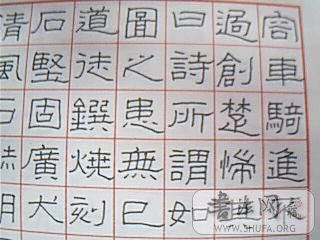 容車騎進
過創楚惴
曰詩所謂如
圖之患無已
道徒鐉燒刻
石堅固廣大
清風
WWW.SHUFA.ORG